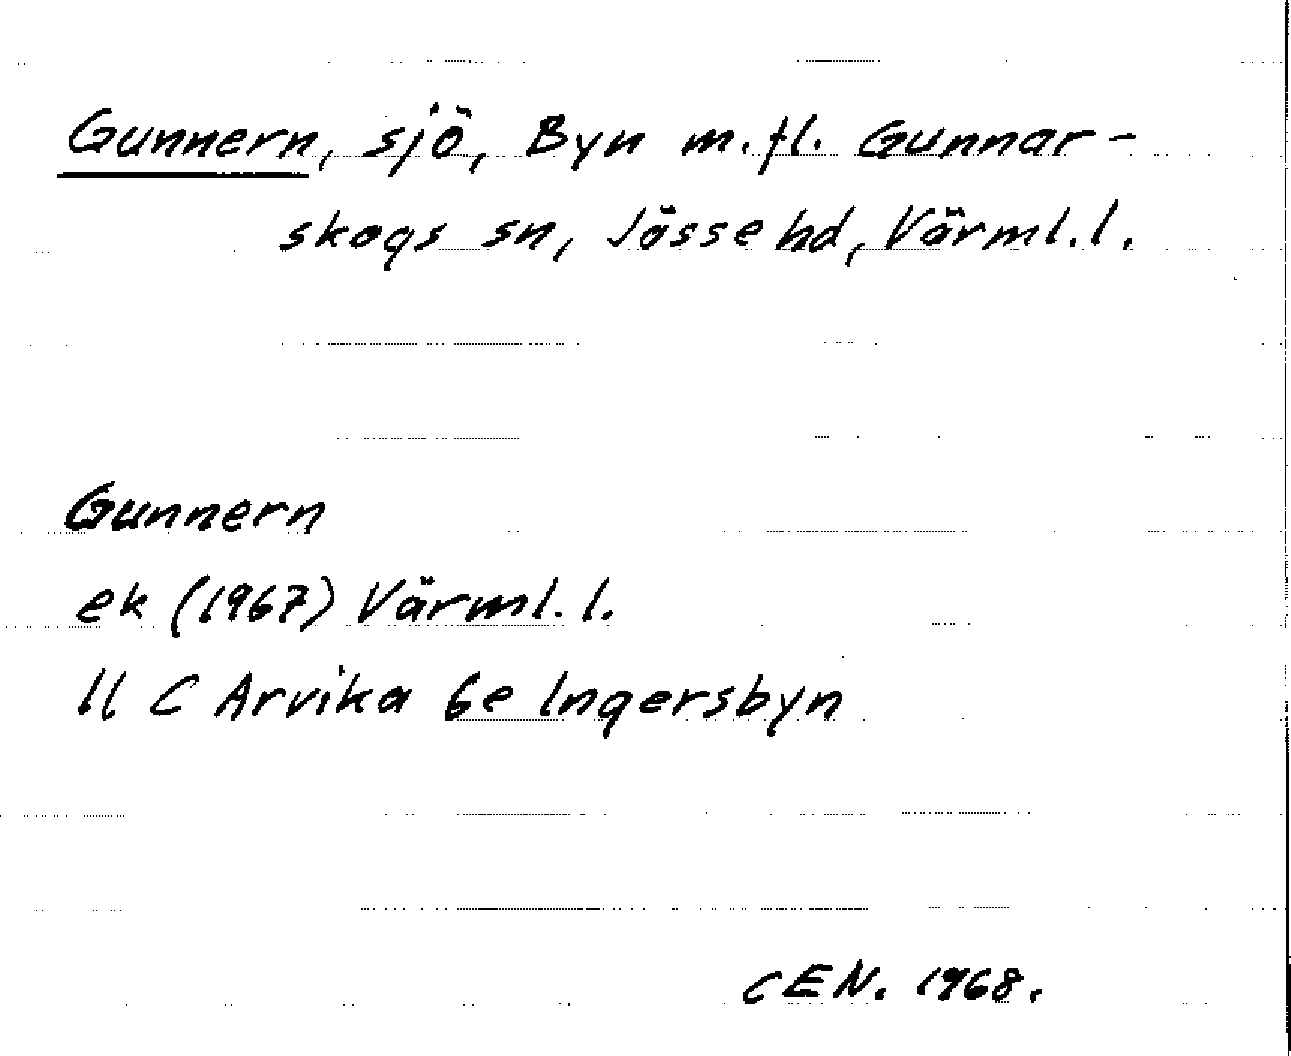 Gunnern, sjö, Byn m.fl. Gunnar-
skogs sn, Jösse hd, Värml. l.
Gunnern
ek (1967) Värml. l.
11 C Arvika 6e Ingersbyn
CEN. 1968.